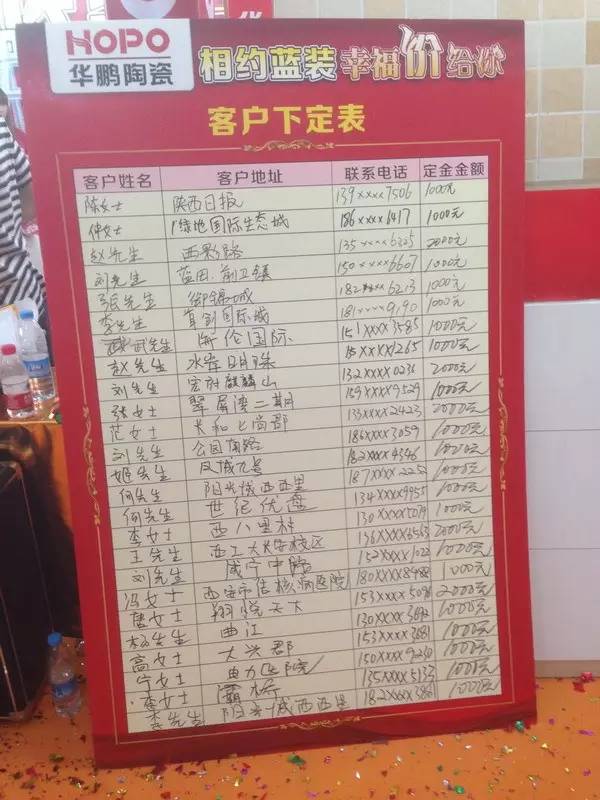 HOPO
华鹏陶瓷
相约蓝装 幸福价给你
客户下定表
客户姓名 客户地址 联系电话 定金金额
陈女士 陕西日报 139xxxx7506 1000元
仲女士 绿地国际生态城 186xxxx6417 1000元
赵先生 西影路 135xxxx6325 2000元
刘先生 蓝田.前卫镇 150xxxx6607 1000元
张先生 御锦城 182xxxx6213 1000元
李先生 国际城 181xxxx9190 1000元
武先生 海伦国际 151xxxx3585 1000元
赵先生 水岸明珠 xxxx1265 1000元
刘先生 宏府麒麟山 132xxxx0234 2000元
张女士 翠屏湾二期 159xxxx9529 1000元
范女士 上尚郡 133xxxx2423 2000元
刘先生 公园南路 186xxxx3059 1000元
姬先生 凤城九号 182xxxx4346 1000元
何先生 阳光城西西里 187xxxx2252 1000元
何先生 世纪优盘 134xxxx9955 1000元
李女士 西八里村 130xxxx5079 1000元
王先生 西工大长安校区 136xxxx6563 2000元
刘先生 咸宁中路 152xxxx1022 1000元
冯女士 西安市结核病医院 180xxxx8488 1000元
翔悦天大 153xxxx5096 2000元
杨先生 曲江 130xxxx3692 1000元
高女士 大兴郡 153xxxx3681 1000元
宁女士 电力医院 150xxxx9230 1000元
李女士 灞桥 135xxxx5133 1000元
李先生 阳光城西西里 182xxxx 1000元